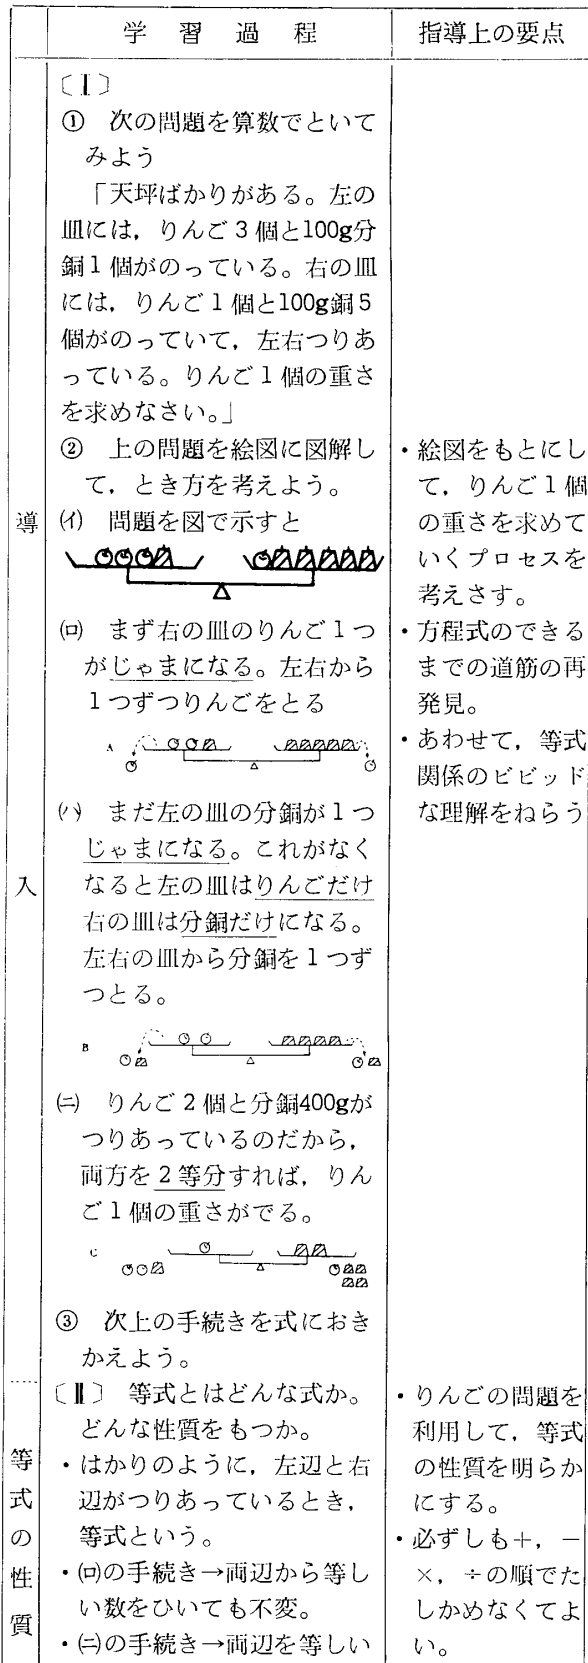 学習過程
指導上の要点
導入
〔Ⅰ〕
① 次の問題を算数でといて
みよう
「天坪ばかりがある。左の
皿には，りんご3個と100g分
銅1個がのっている。右の皿
には，りんご1個と100g銅5
個がのっていて，左右つりあ
っている。りんご1個の重さ
を求めなさい。」
② 上の問題を絵図に図解し
て，とき方を考えよう。
(イ) 問題を図で示すと
(ロ) まず右の皿のりんご1つ
がじゃまになる。左右から
1つずつりんごをとる
A
(ハ) まだ左の皿の分銅が1つ
じゃまになる。これがなく
なると左の皿はりんごだけ
右の皿は分銅だけになる。
左右の皿から分銅を1つず
つとる。
B
(ニ) りんご2個と分銅400gが
つりあっているのだから，
両方を2等分すれば，りん
ご1個の重さがでる。
C
③ 次上の手続きを式におき
かえよう。
・絵図をもとにし
て，りんご1個
の重さを求めて
いくプロセスを
考えさす。
・方程式のできる
までの道筋の再
発見。
・あわせて，等式
関係のビビッド
な理解をねらう
等式の性質
〔Ⅱ〕 等式とはどんな式か。
どんな性質をもつか。
・はかりのように，左辺と右
辺がつりあっているとき，
等式という。
・(ロ)の手続き→両辺から等し
い数をひいても不変。
・(ニ)の手続き→両辺を等しい
・りんごの問題を
利用して，等式
の性質を明らか
にする。
・必ずしも＋，－
×，÷の順でた
しかめなくてよ
い。